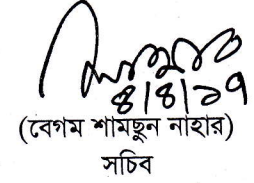 ৪|৪|১৭
(বেগম শামছুন নাহার)
সচিব